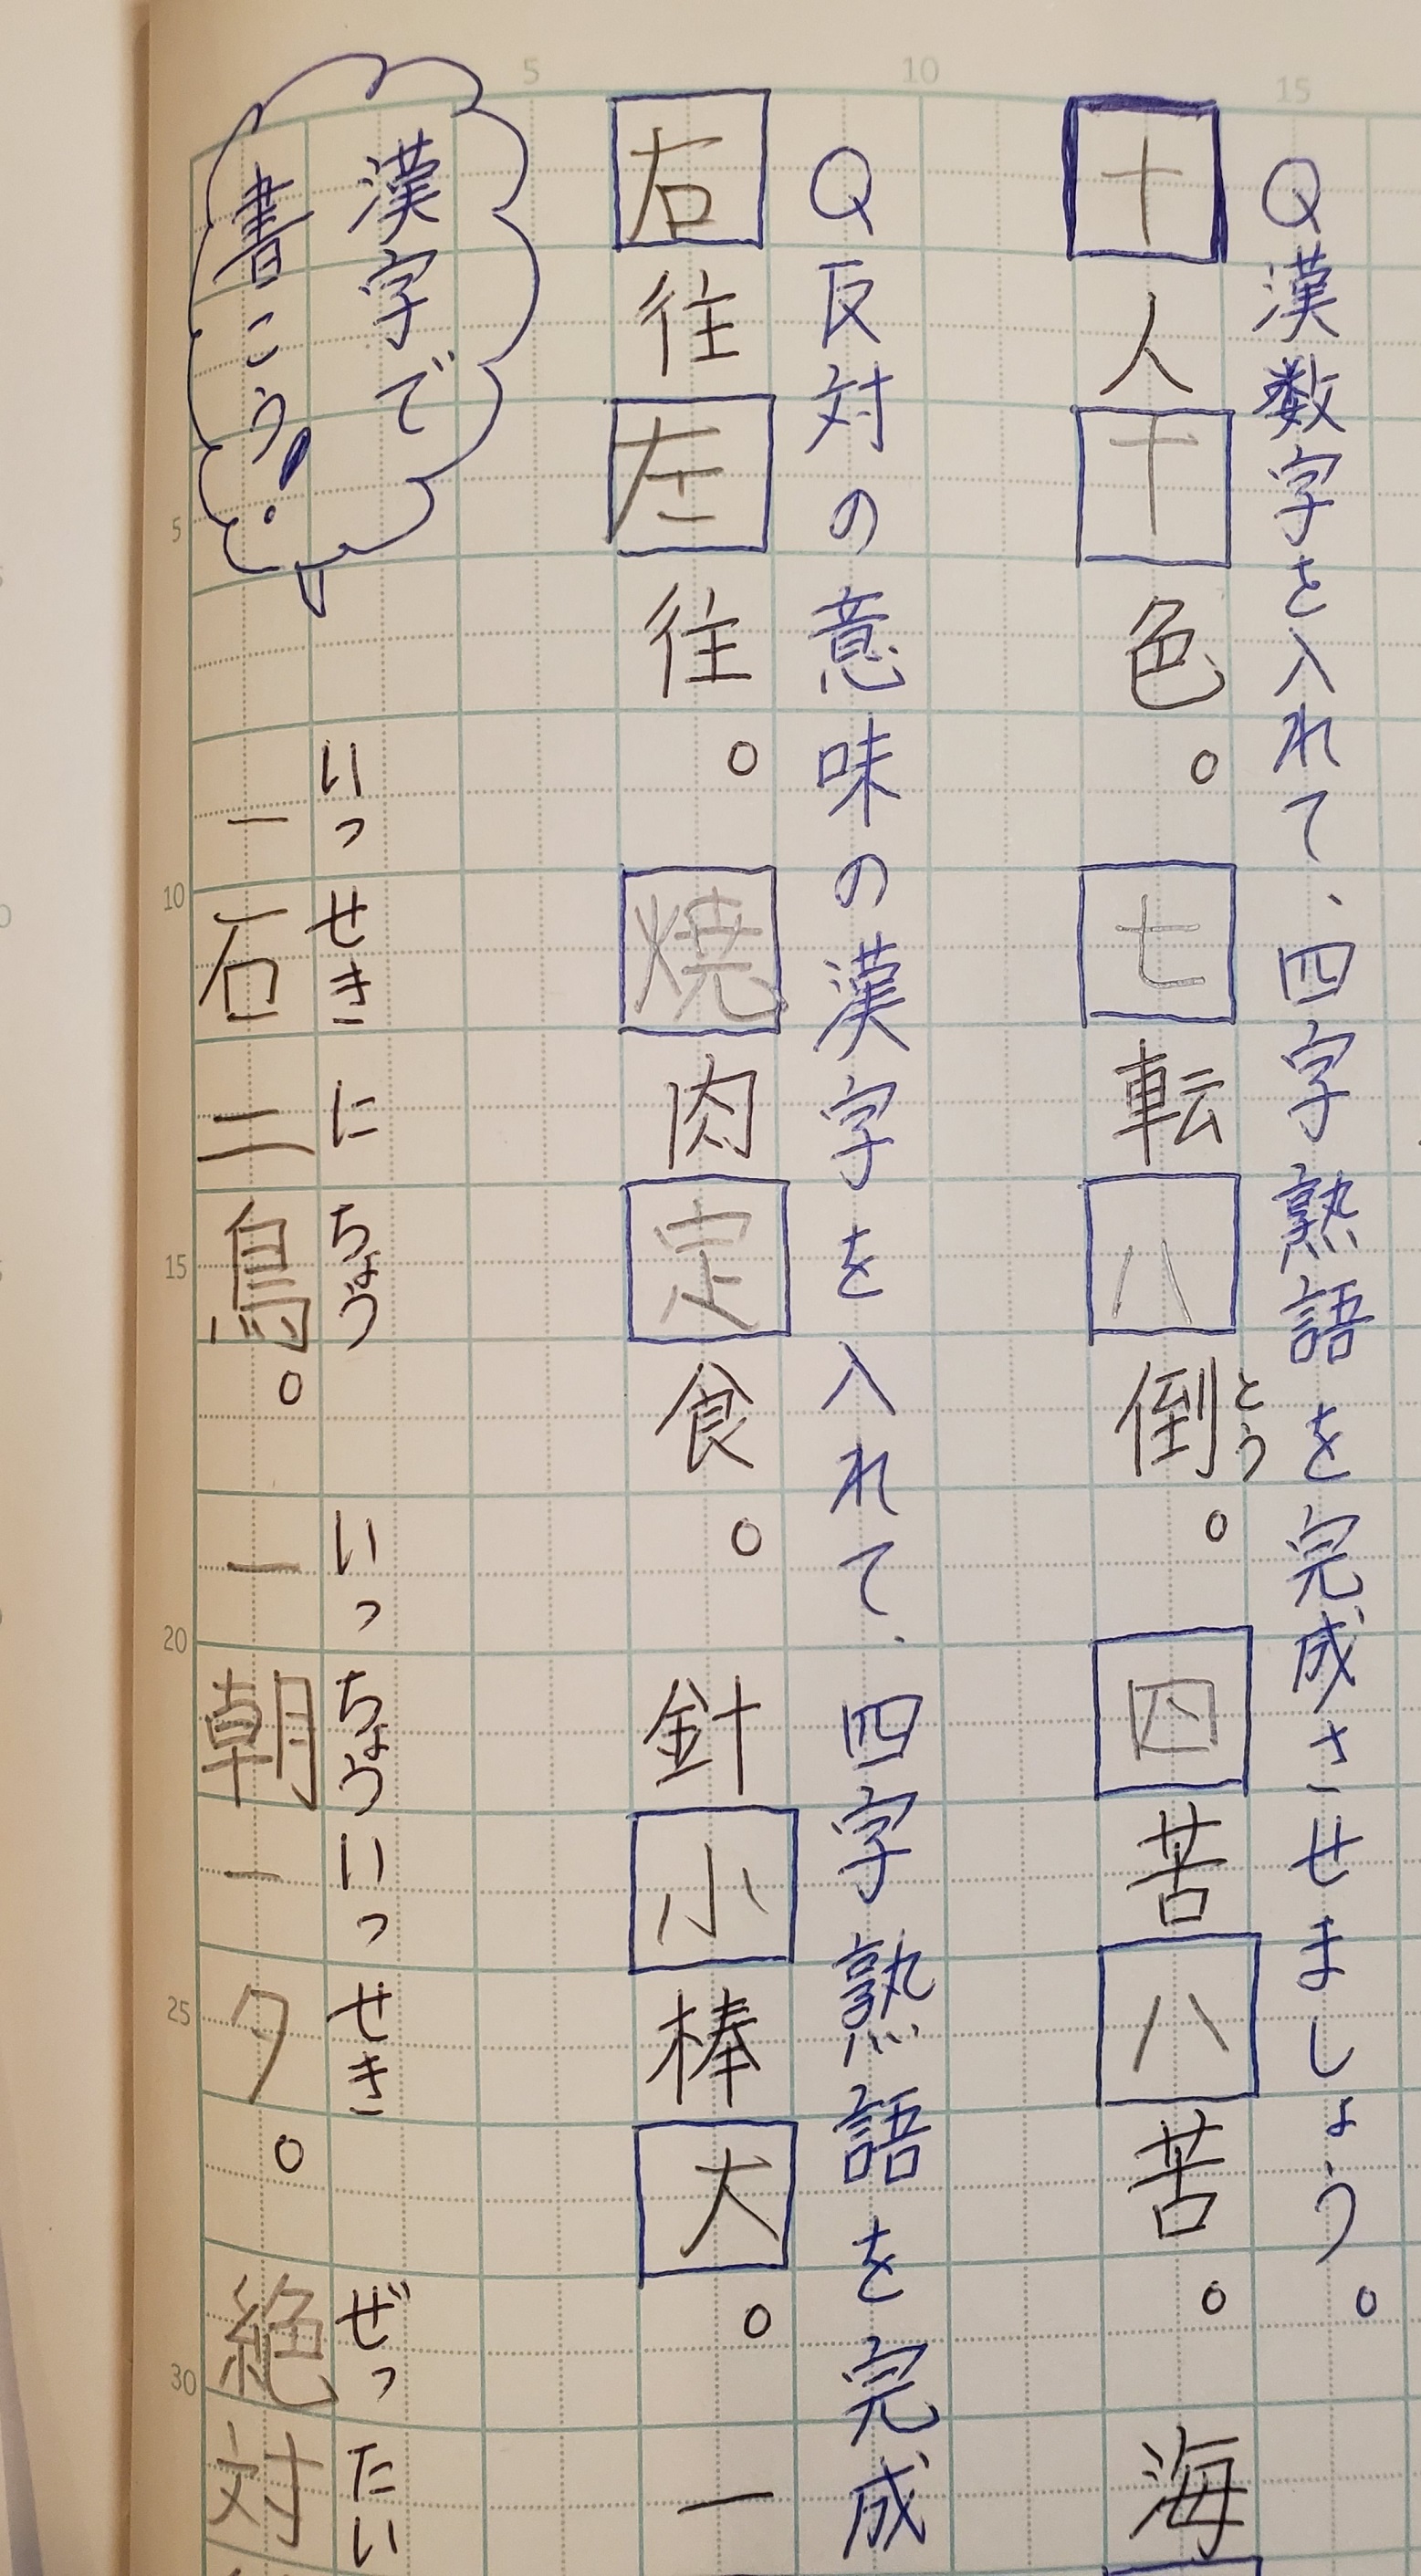 Q漢数字を入れて、四字熟語を完成させましょう。
十人十色。七転八倒。四苦八苦。海
とう
Q反対の意味の漢字を入れて、四字熟語を完成
右往左往。焼肉定食。針小棒大。一
漢字で
書こう!
いっせきにちょう いっちょういっせき ぜったい
一石二鳥。一朝一夕。絶対
5
10
15
5
10
15
20
25
30